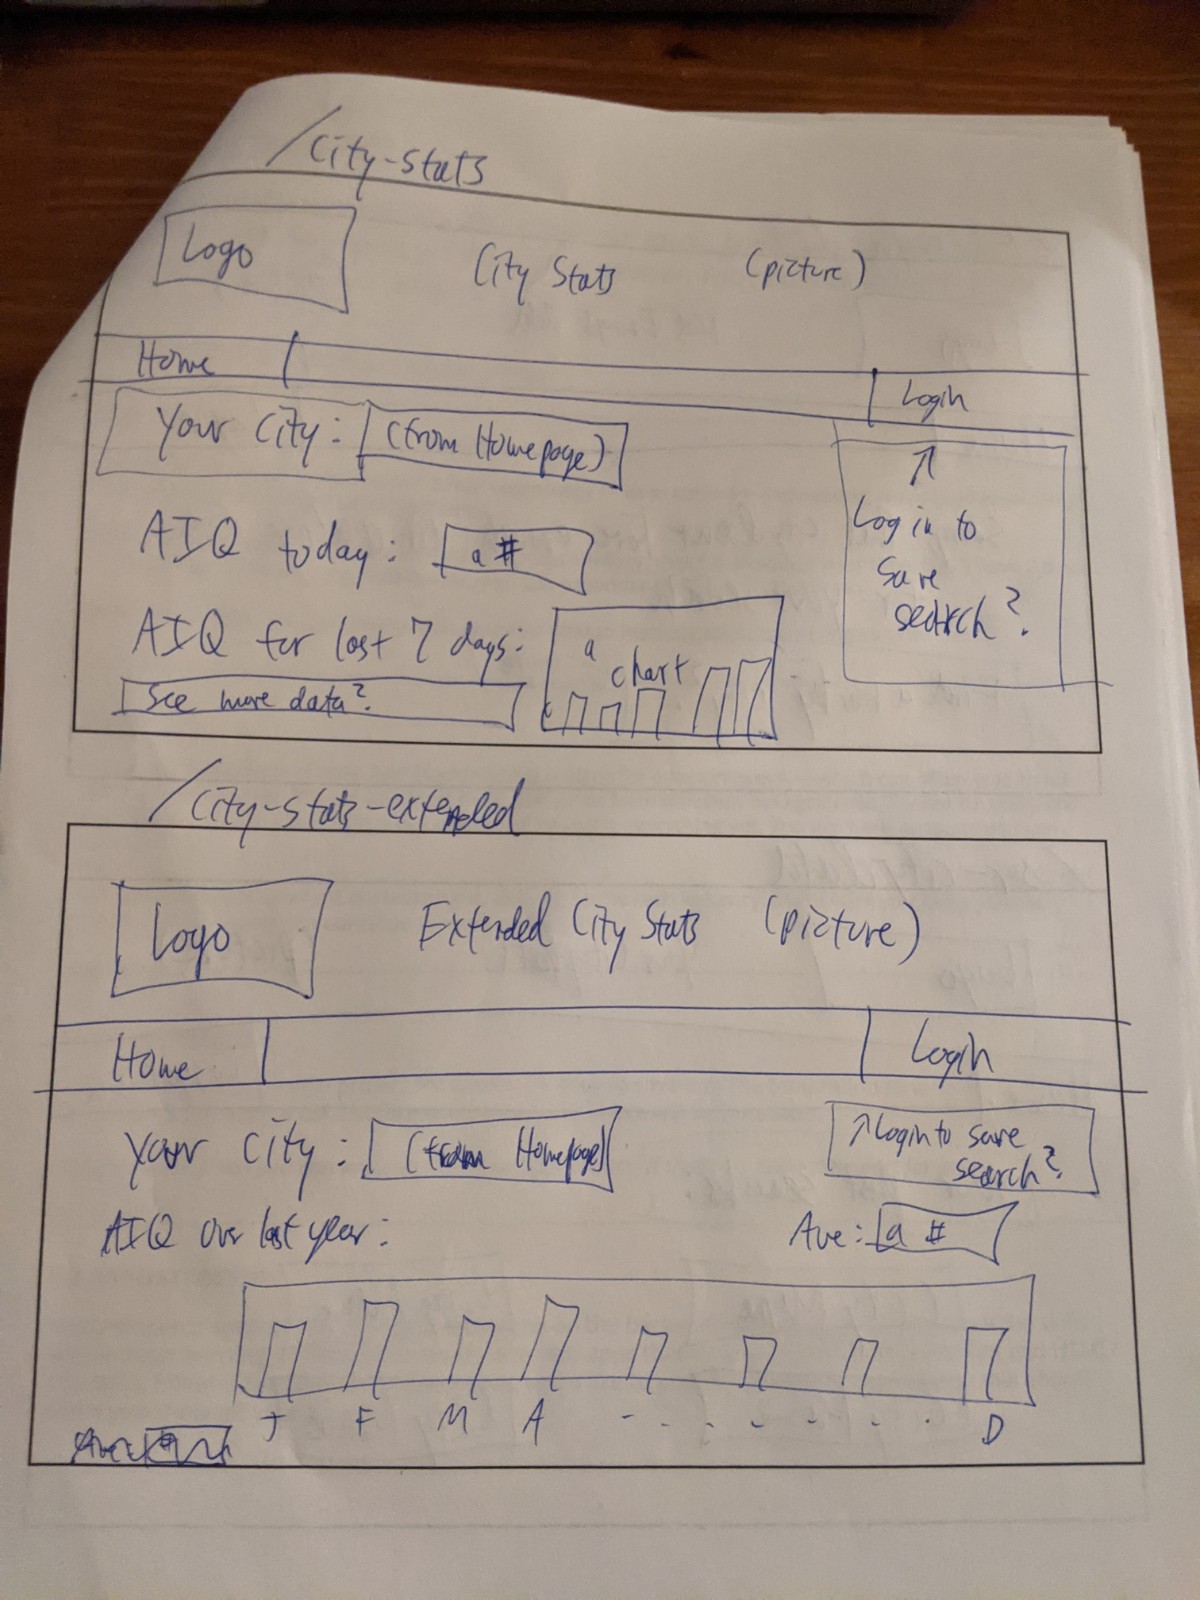 /city-stats
Logo City Stats (picture)
Home Login
Your City: (from Homepage)
↑
Log in to
save
search?
AIQ today: a #
AIQ for last 7 days:
a
chart
See more data?
/city-stats-extended
Logo Extended City Stats (picture)
Home Login
Your City: (from Homepage)
↑ Login to save
search?
AIQ over last year: Ave: a #
J F M A - - - - - - - - D